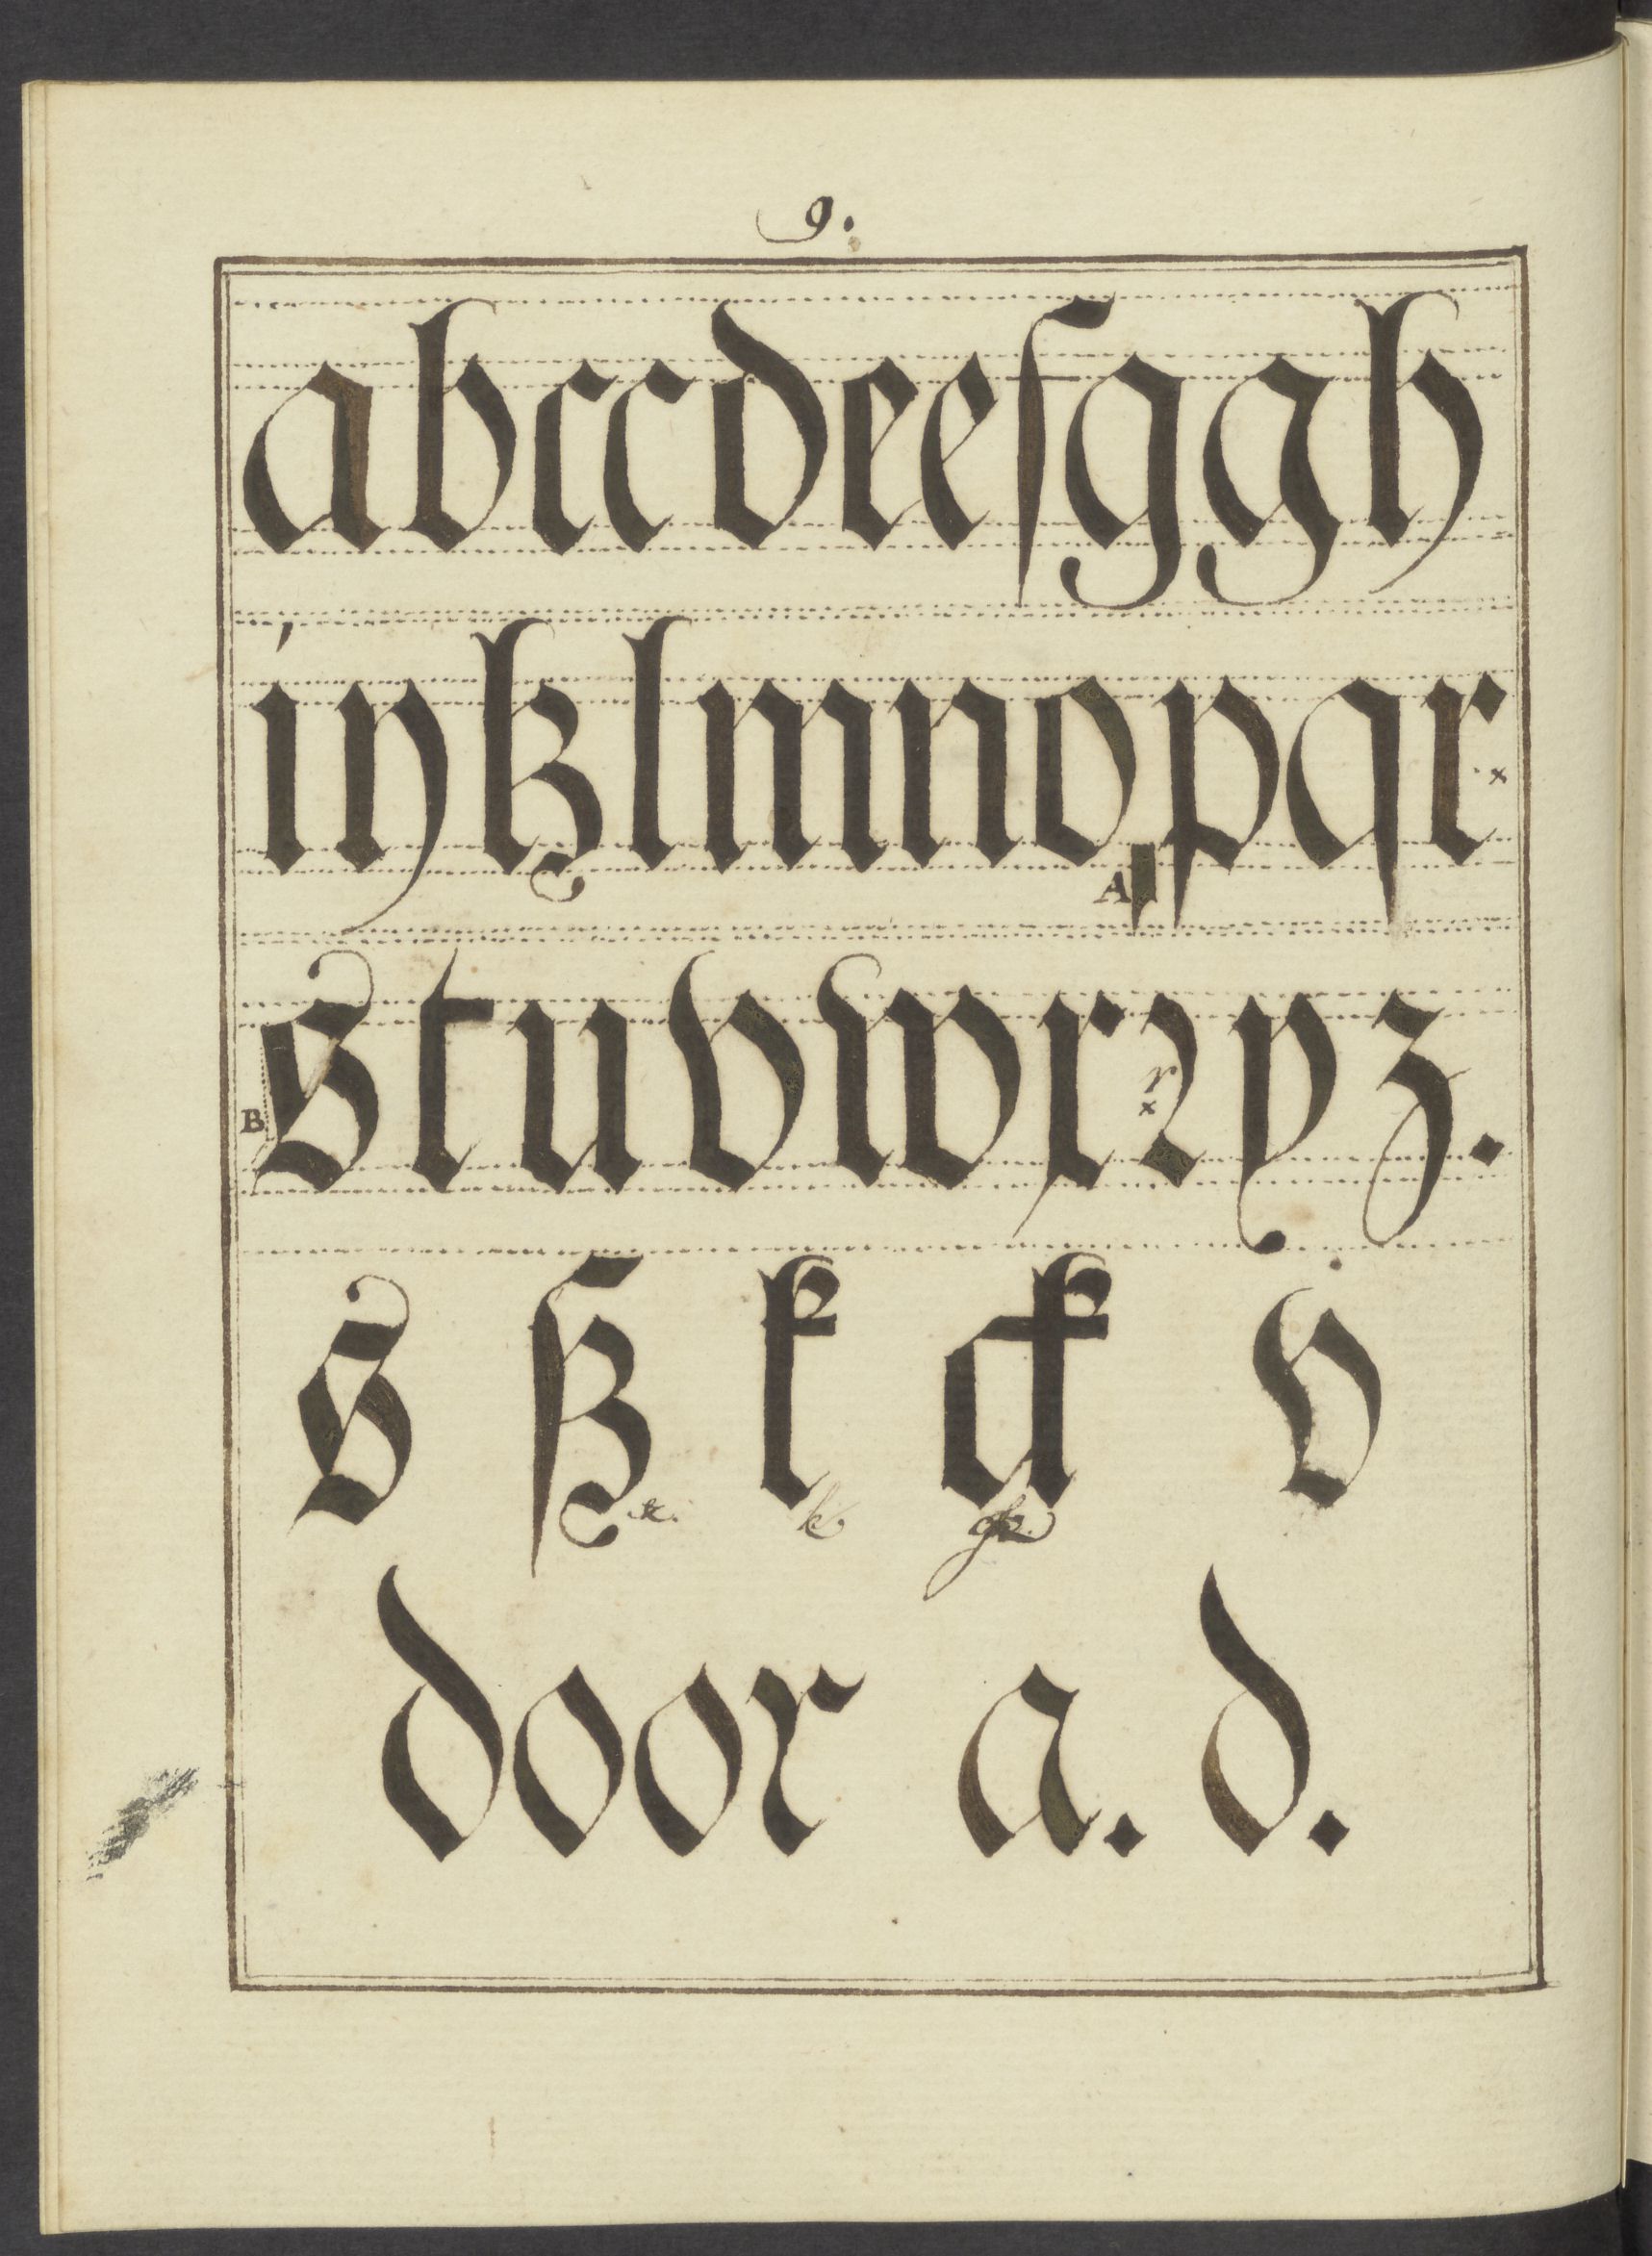 9.
abccdeefggh
iyklmnopqr x
A
stuvwxryz.
B
r x
s ß k ck v
k. ck.
door a. d.